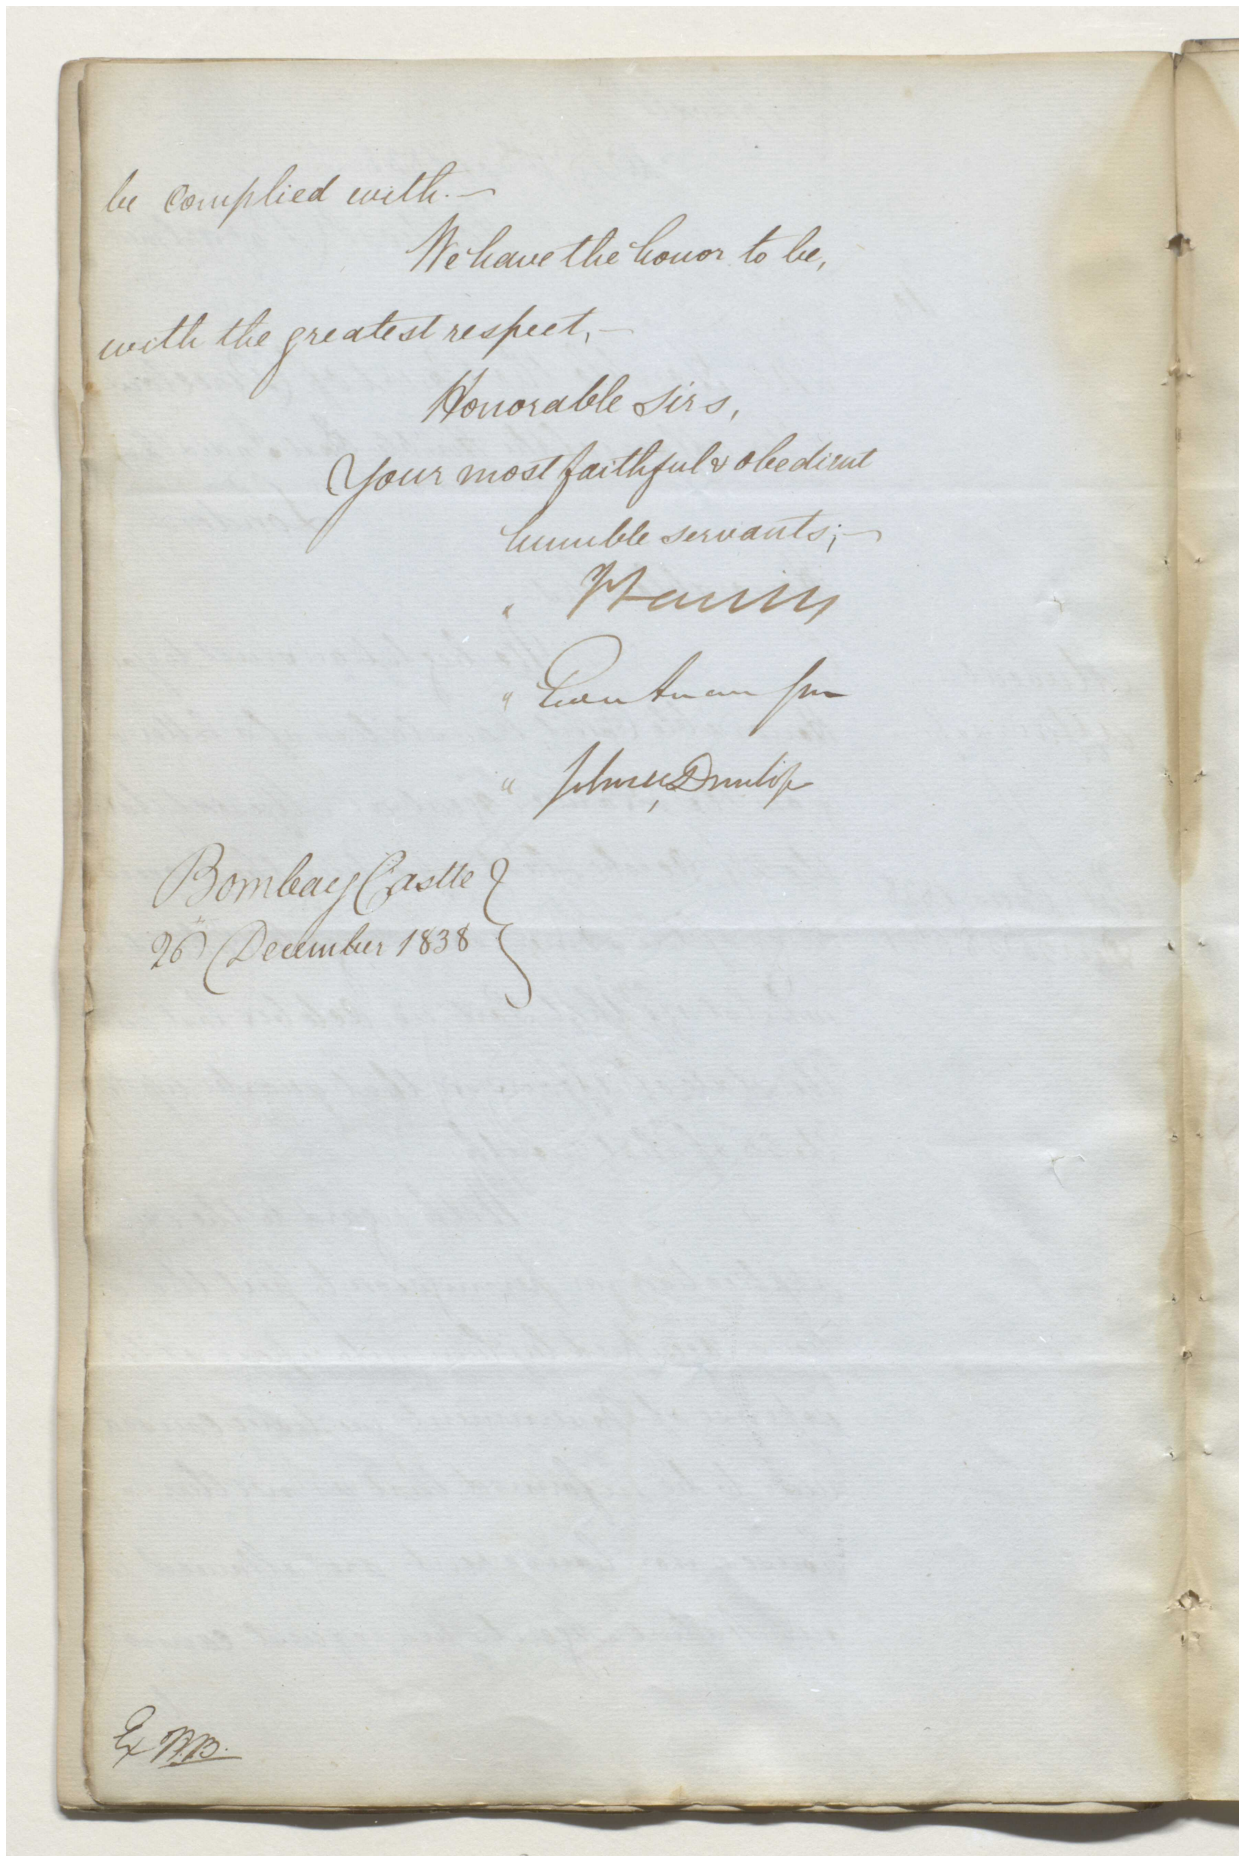 be complied with.—
We have the honor to be,
with the greatest respect,—
Honorable Sirs,
Your most faithful & obedient
humble servants;—
"
"
" John A Dunlop
Bombay Castle
26th December 1838
Ex